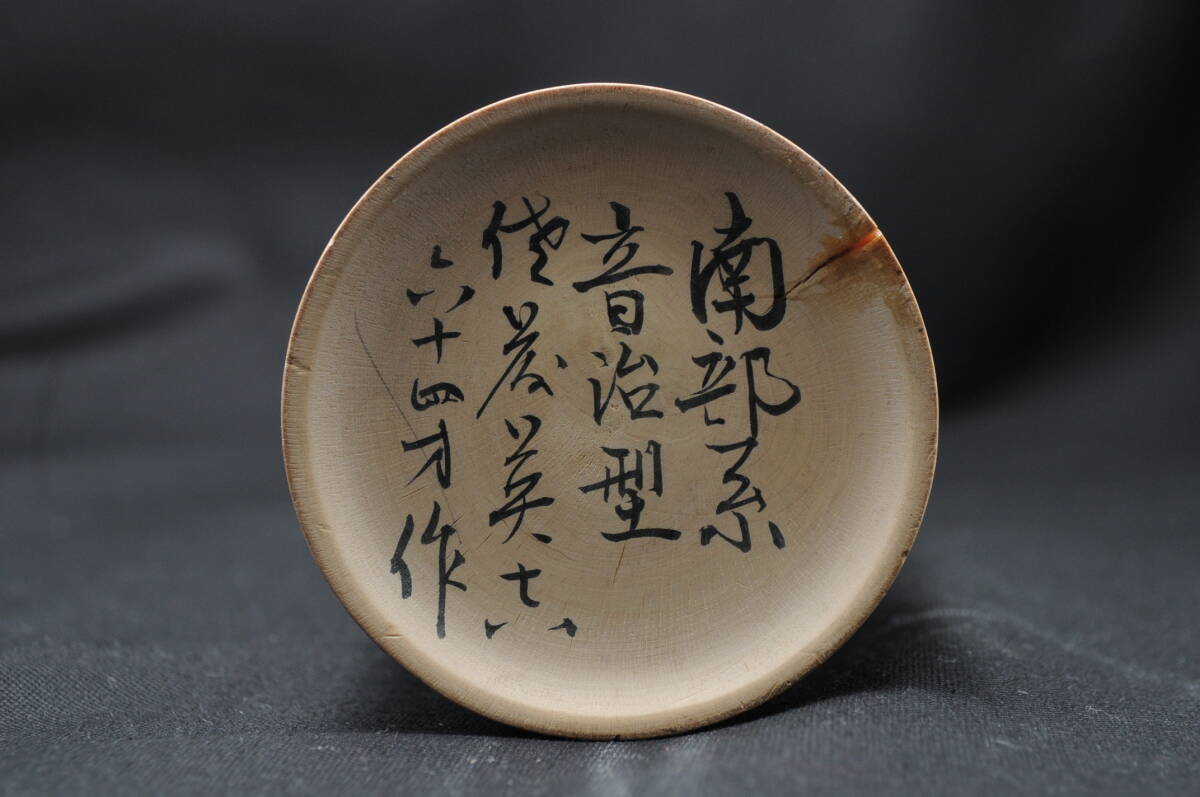 南部系
音治型
佐々木英六
六十四才作